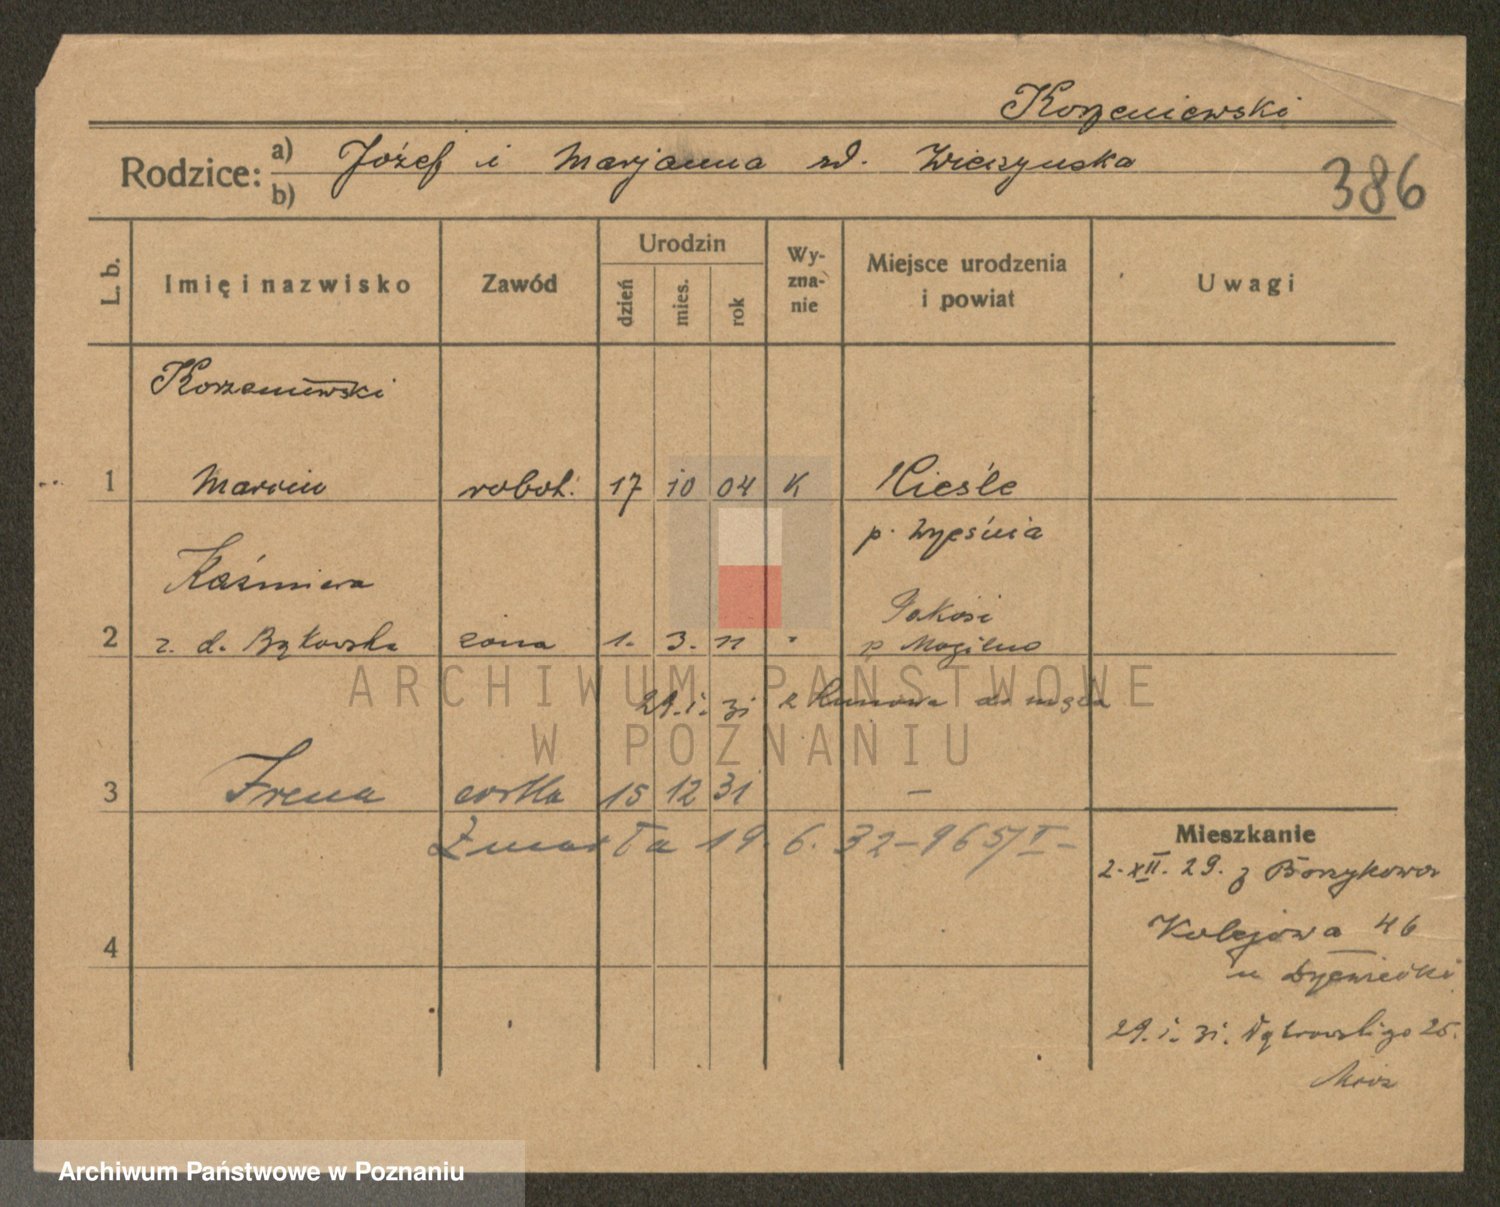 Korzeniewski
Rodzice: a) Józef i Marjanna zd. Wieczyńska
b)
386
L. b.
Imię i nazwisko
Zawód
Urodzin
dzień
mies.
rok
Wy-
zna-
nie
Miejsce urodzenia
i powiat
Uwagi
Korzeniewski
1 Marcin robot. 17 10 04 K
p. Września
Kaźmiera
2 z. d. Bątkowska żona 1. 3. 11 "
p. Mogilno
29. i. 31 z do męża
3 Irena córka 15 12 31 –
Zmarła 19. 6. 32 – 965/I –
4
Mieszkanie
2. XII. 29. z Borzykowa
Kolejowa 46
u
29. i. 31. Dąbrowskiego 25.
ARCHIWUM PAŃSTWOWE
W POZNANIU
Archiwum Państwowe w Poznaniu